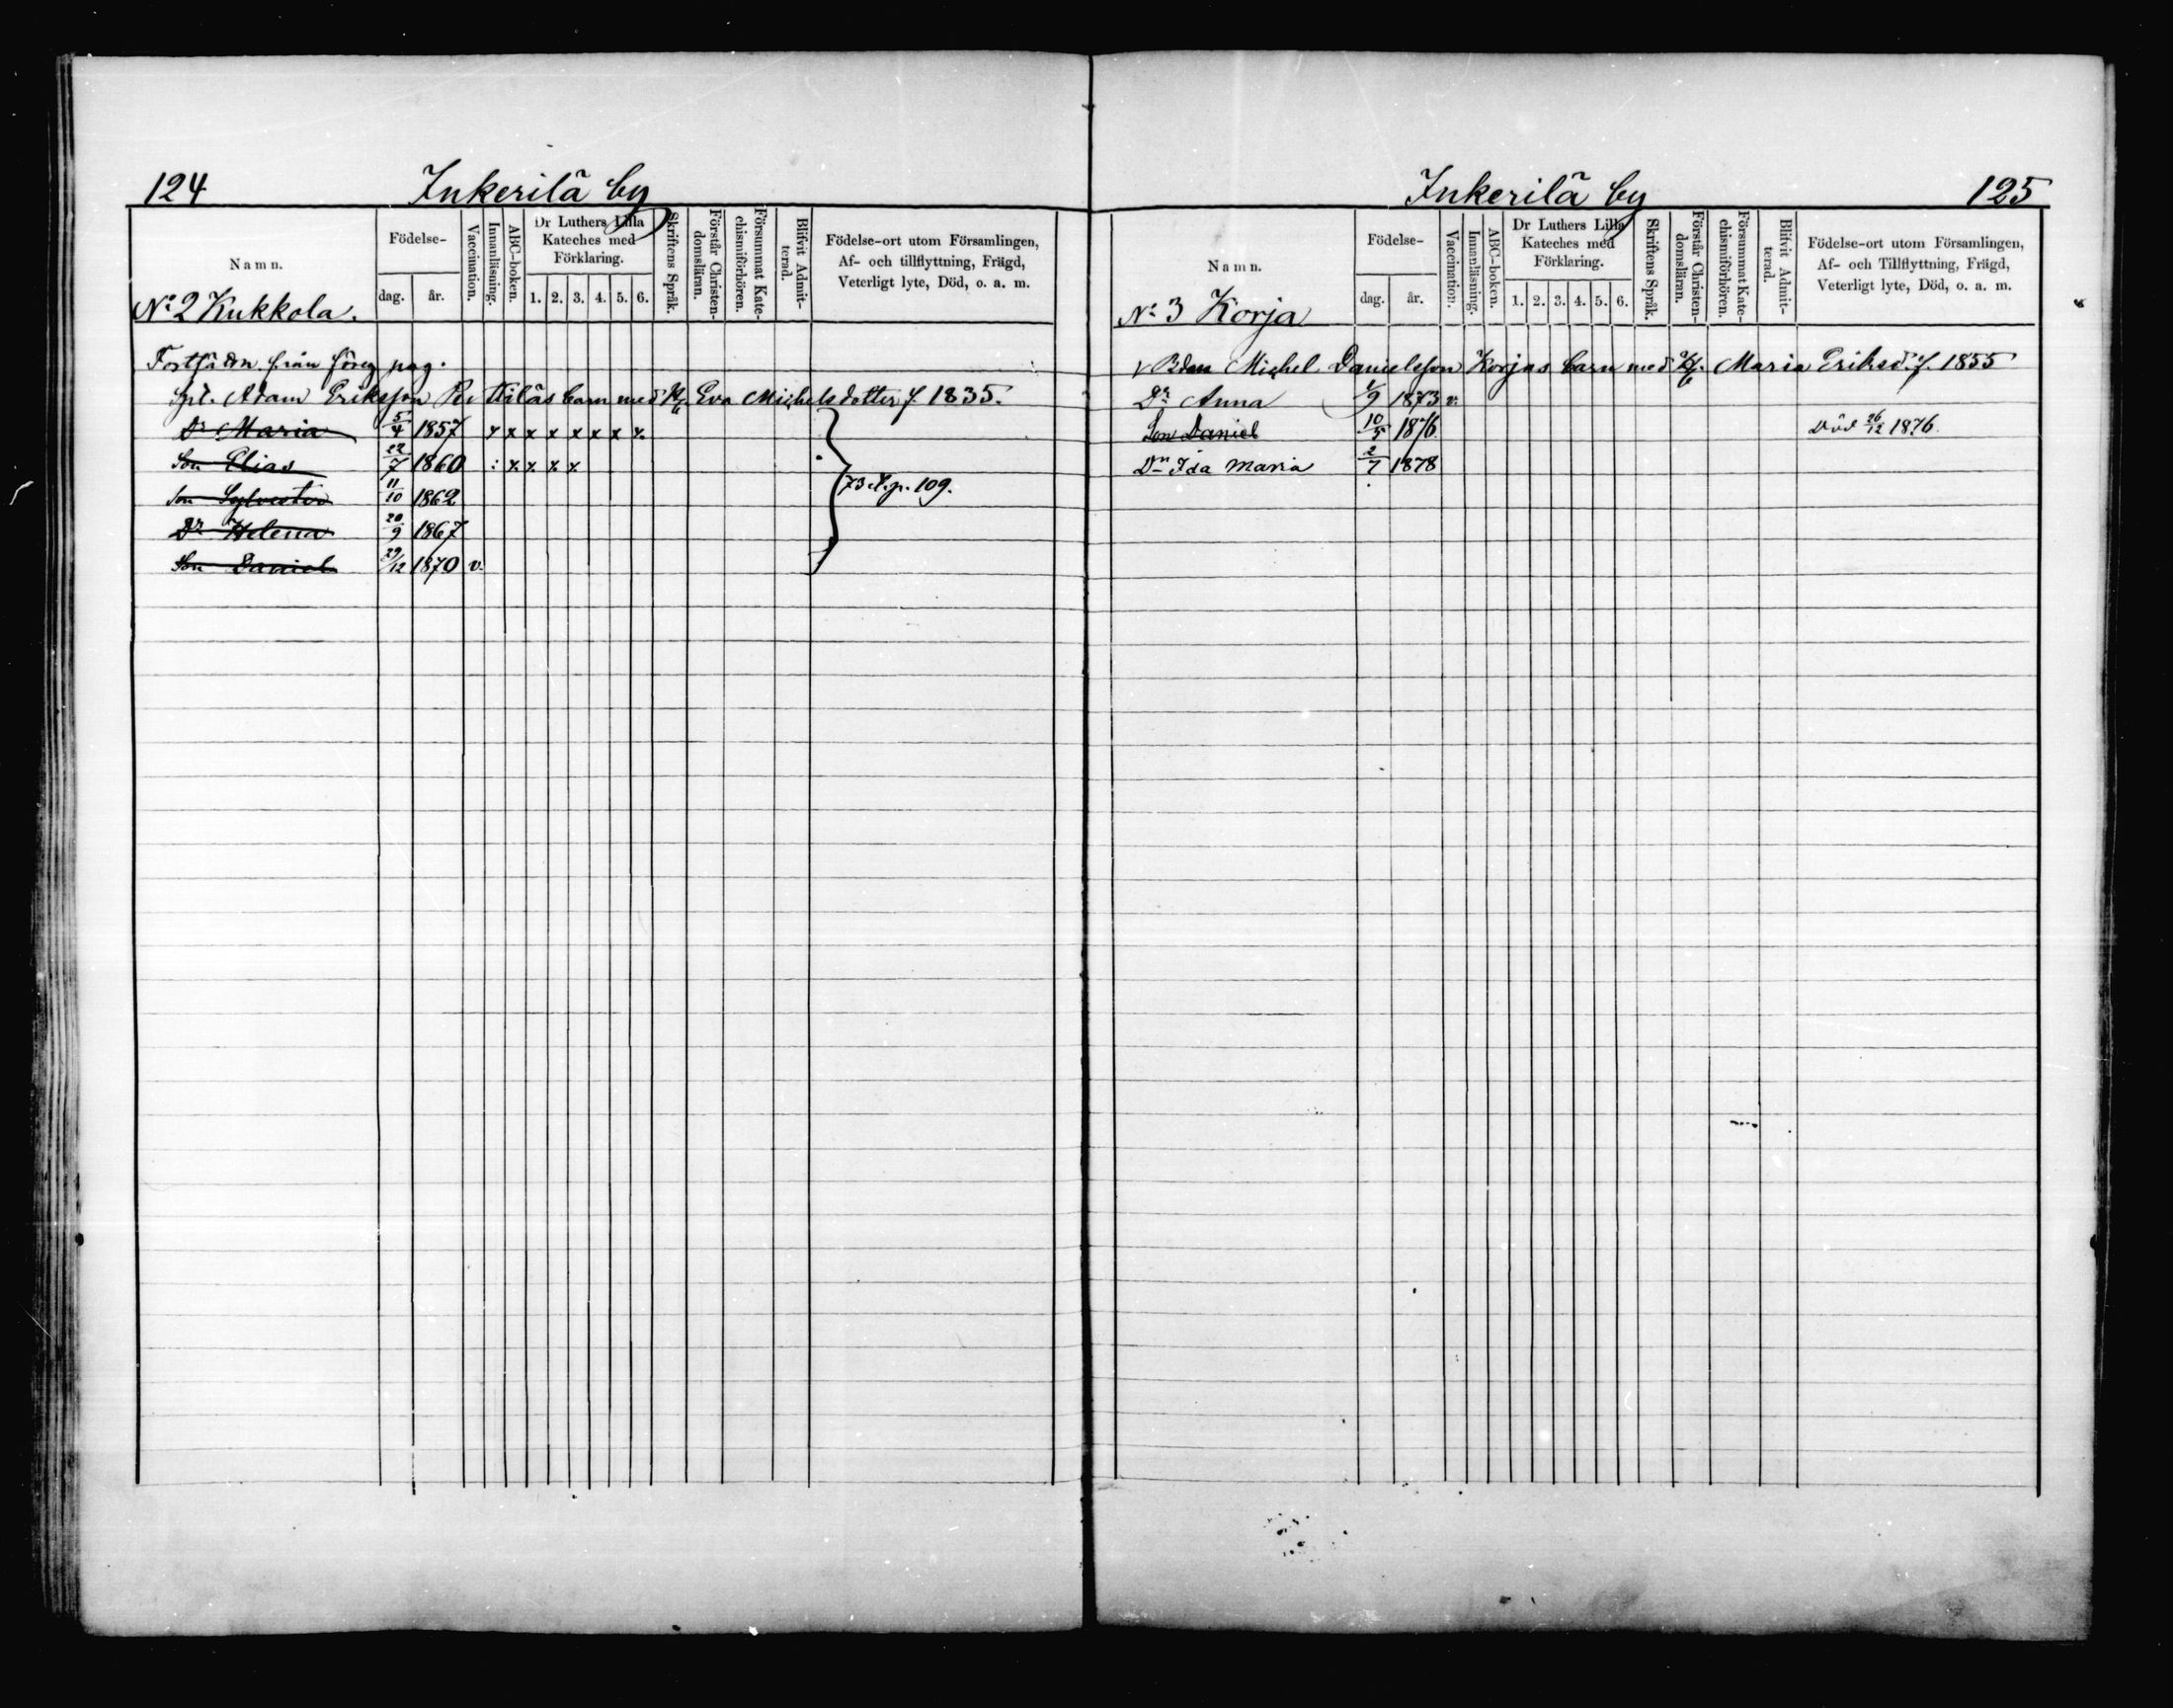 124 Inkerilä by
Namn. Födelse- dag. år. Vaccination. Innanläsning. ABC-boken. Dr Luthers Lilla Kateches med Förklaring. 1. 2. 3. 4. 5. 6. Skriftens Språk. Förstår Christendomsläran. Försummat Katechismiförhören. Blifvit Admitterad. Födelse-ort utom Församlingen, Af- och tillflyttning, Frägd, Veterligt lyte, Död, o. a. m.
No 2 Kukkola.
från föreg pag.
Adam Eriksson barn med Eva Michelsdotter f. 1835.
Dr Maria 5/4 1857 x x x x x x x x
Son Elias 22/7 1860 : x x x x
Son Sylvester 11/10 1862 73 p. 109.
Dr Helena 20/9 1867
Son Daniel 29/12 1870 v.
Inkerilä by 125
Namn. Födelse- dag. år. Vaccination. Innanläsning. ABC-boken. Dr Luthers Lilla Kateches med Förklaring. 1. 2. 3. 4. 5. 6. Skriftens Språk. Förstår Christendomsläran. Försummat Katechismiförhören. Blifvit Admitterad. Födelse-ort utom Församlingen, Af- och Tillflyttning, Frägd, Veterligt lyte, Död, o. a. m.
No 3 Korja
Michel Danielsson Korjas barn med Maria Eriksd. f. 1855
Dr Anna 1/9 1873 v.
Son Daniel 10/5 1876 Död 26/12 1876.
Dr Ida Maria 2/7 1878